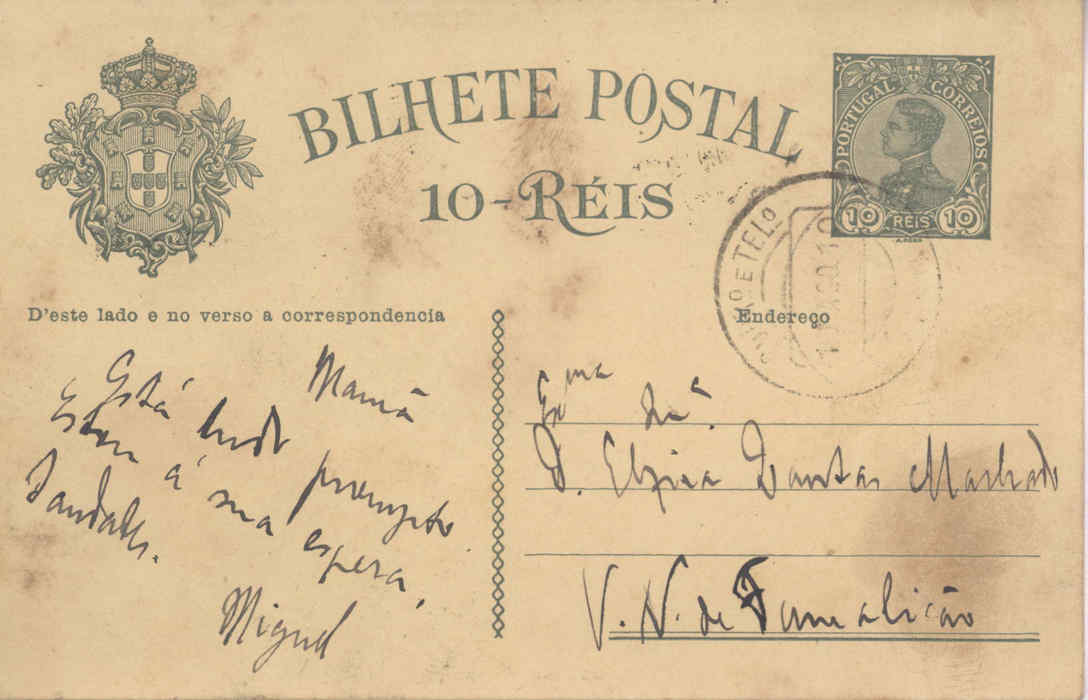 BILHETE POSTAL
10-RÉIS
PORTUGAL CORREIOS
10 RÉIS 10
D'este lado e no verso a correspondencia
Endereço
Mamã
Está tudo prompto
Estou á sua espera,
Saudades.
Miguel
Exma Snra
D. Elzira Dantas Machado
V. N. de Famalicão